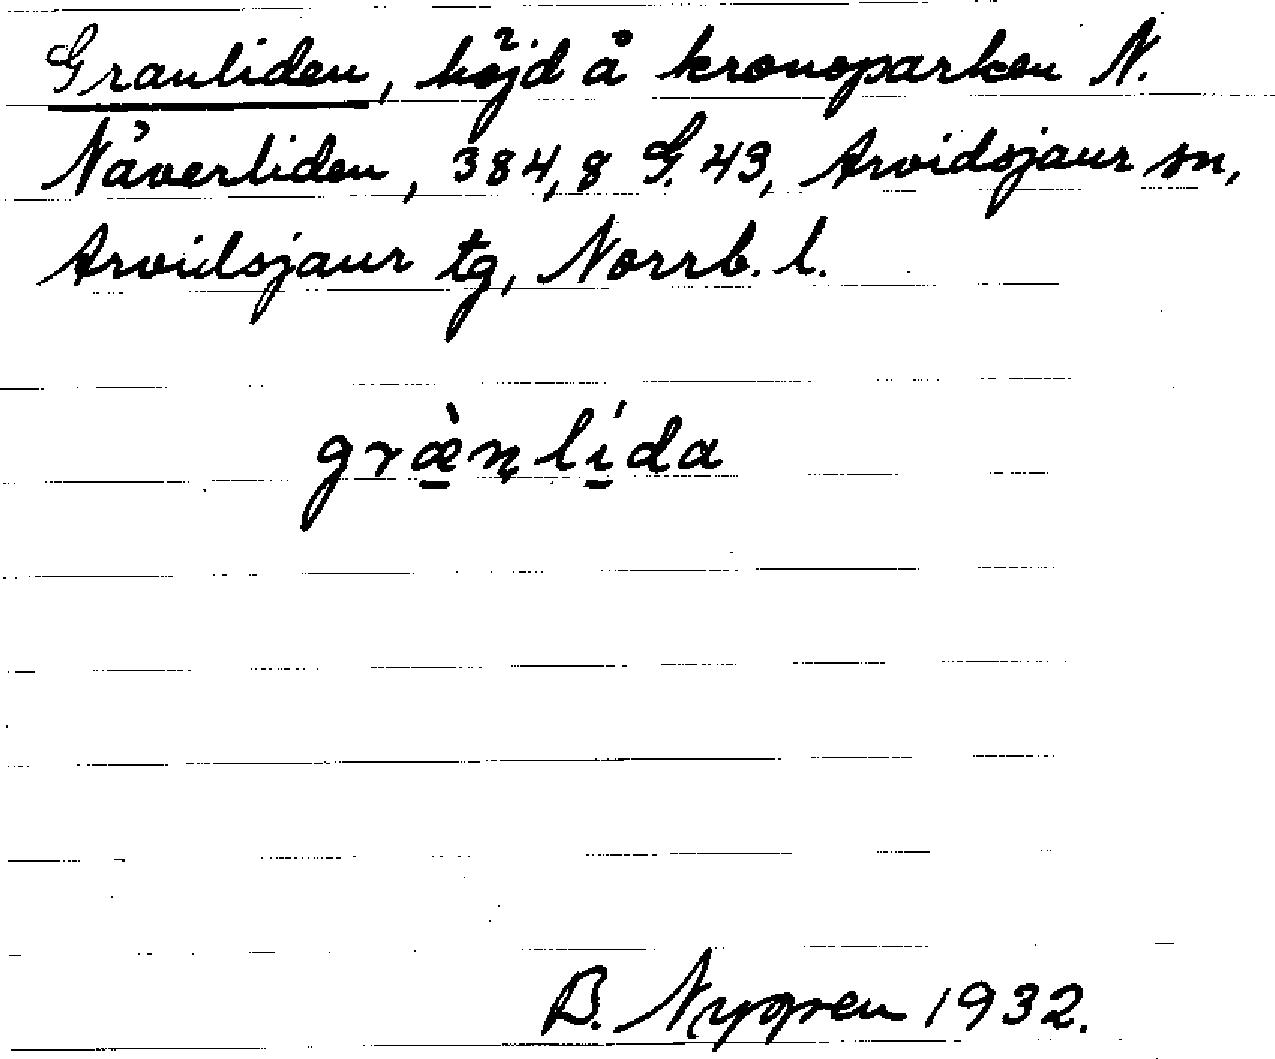 Granliden, höjd å kronoparken N.
Näverliden, 384,8 G. 43, Arvidsjaur sn,
Arvidsjaur tg, Norrb. l.
græ̱̀ṇlí̱da
B. Nygren 1932.